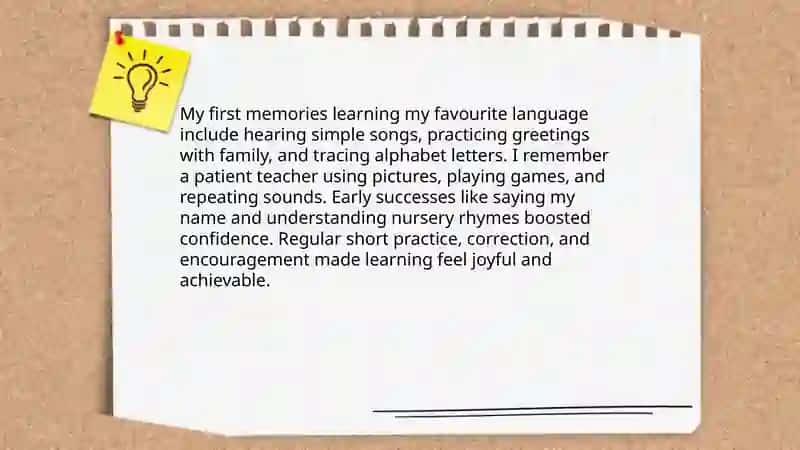 My first memories learning my favourite language
include hearing simple songs, practicing greetings
with family, and tracing alphabet letters. I remember
a patient teacher using pictures, playing games, and
repeating sounds. Early successes like saying my
name and understanding nursery rhymes boosted
confidence. Regular short practice, correction, and
encouragement made learning feel joyful and
achievable.